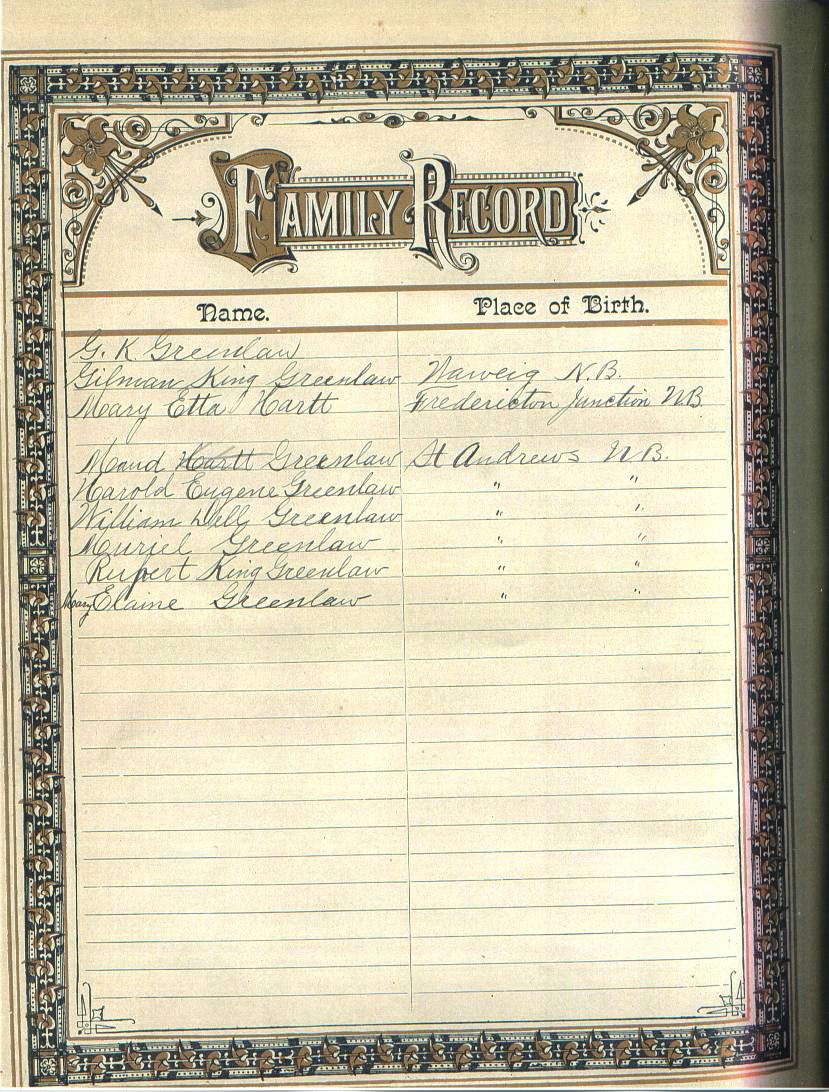 FAMILY RECORD
Name. Place of Birth.
G. K Greenlaw
Gilman King Greenlaw Waweig N.B.
Mary Etta Hartt Fredericton Junction N.B
Maud Hartt Greenlaw St Andrews N.B.
Harold Eugene Greenlaw " "
William Dell Greenlaw " "
Muriel Greenlaw " "
Rupert King Greenlaw " "
Mary Elaine Greenlaw " "